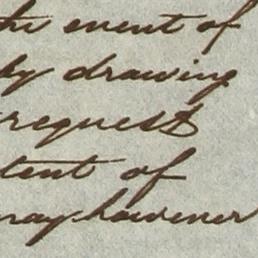 the event of
by drawing
request
tent of
may however